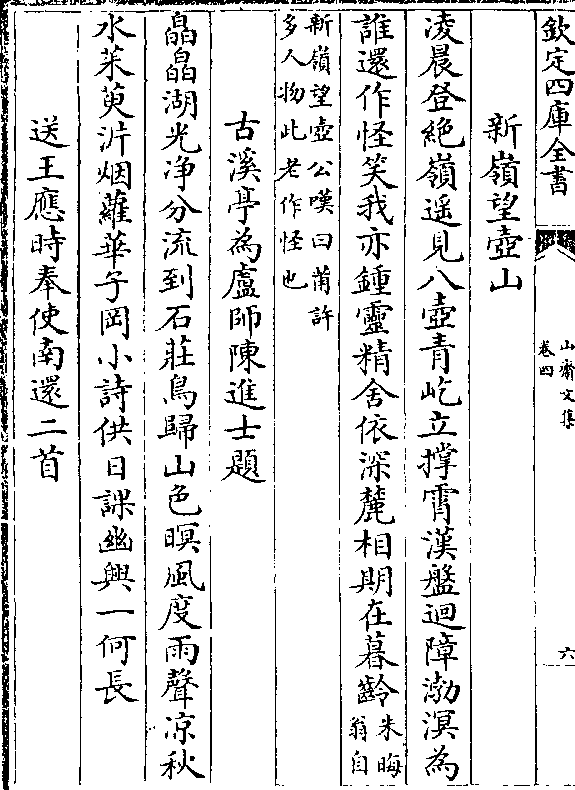 欽定四庫全書
山齋文集
卷四
六
新嶺望壺山
凌晨登絶嶺遥見八壺青屹立撑霄漢盤迴障渤溟為
誰還作怪笑我亦鍾靈精舍依深麓相期在暮齡朱晦
翁自
新嶺望壺公嘆曰莆許
多人物此老作怪也
古溪亭為盧師陳進士題
皛皛湖光净分流到石莊鳥歸山色暝風度雨聲凉秋
水茱萸沜烟蘿華子岡小詩供日課幽興一何長
送王應時奉使南還二首